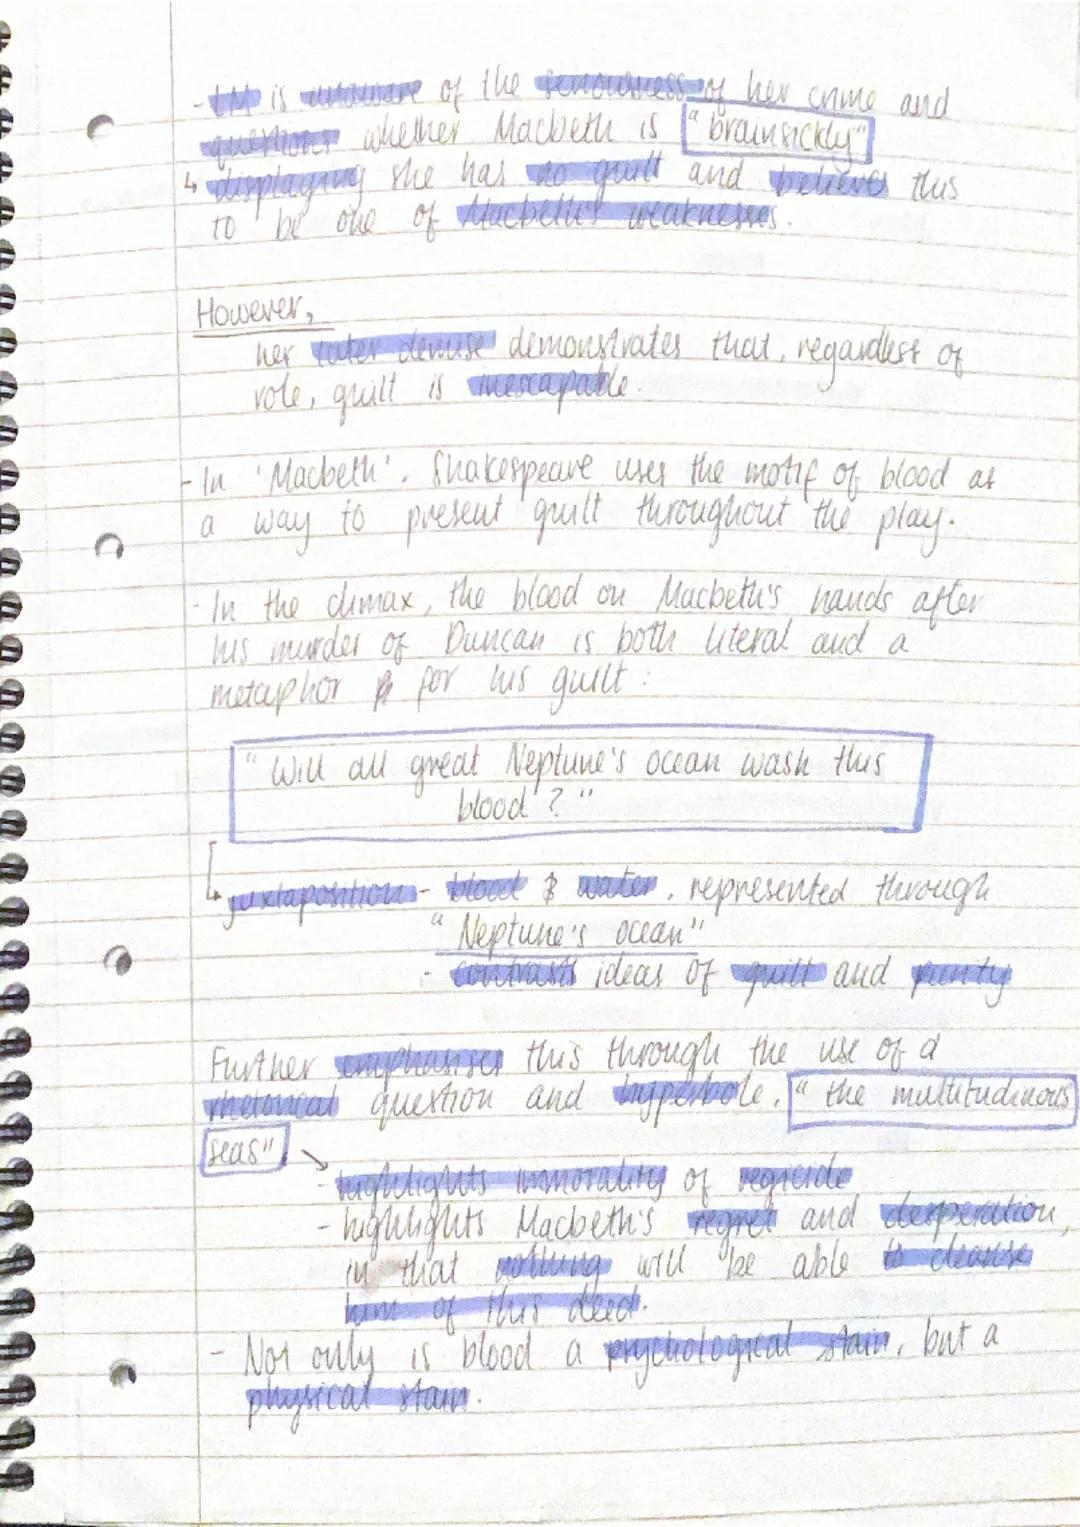 - LM is unaware of the seriousness of her crime and
questions whether Macbeth is "brainsickly"
↳ displaying she has no guilt and believes this
to be one of Macbeth's weaknesses.
However,
her later demise demonstrates that, regardless of
role, guilt is inescapable.
- In 'Macbeth', Shakespeare uses the motif of blood as
a way to present guilt throughout the play.
- In the climax, the blood on Macbeth's hands after
his murder of Duncan is both literal and a
metaphor for his guilt:
"Will all great Neptune's ocean wash this
blood?"
↳ juxtaposition - blood & water, represented through
"Neptune's ocean"
- contrasts ideas of guilt and purity
Further emphasises this through the use of a
rhetorical question and hyperbole, "the multitudinous
seas"
- highlights immorality of regicide
- highlights Macbeth's regret and desperation,
in that nothing will be able to cleanse
him of this deed.
- Not only is blood a psychological stain, but a
physical stain.